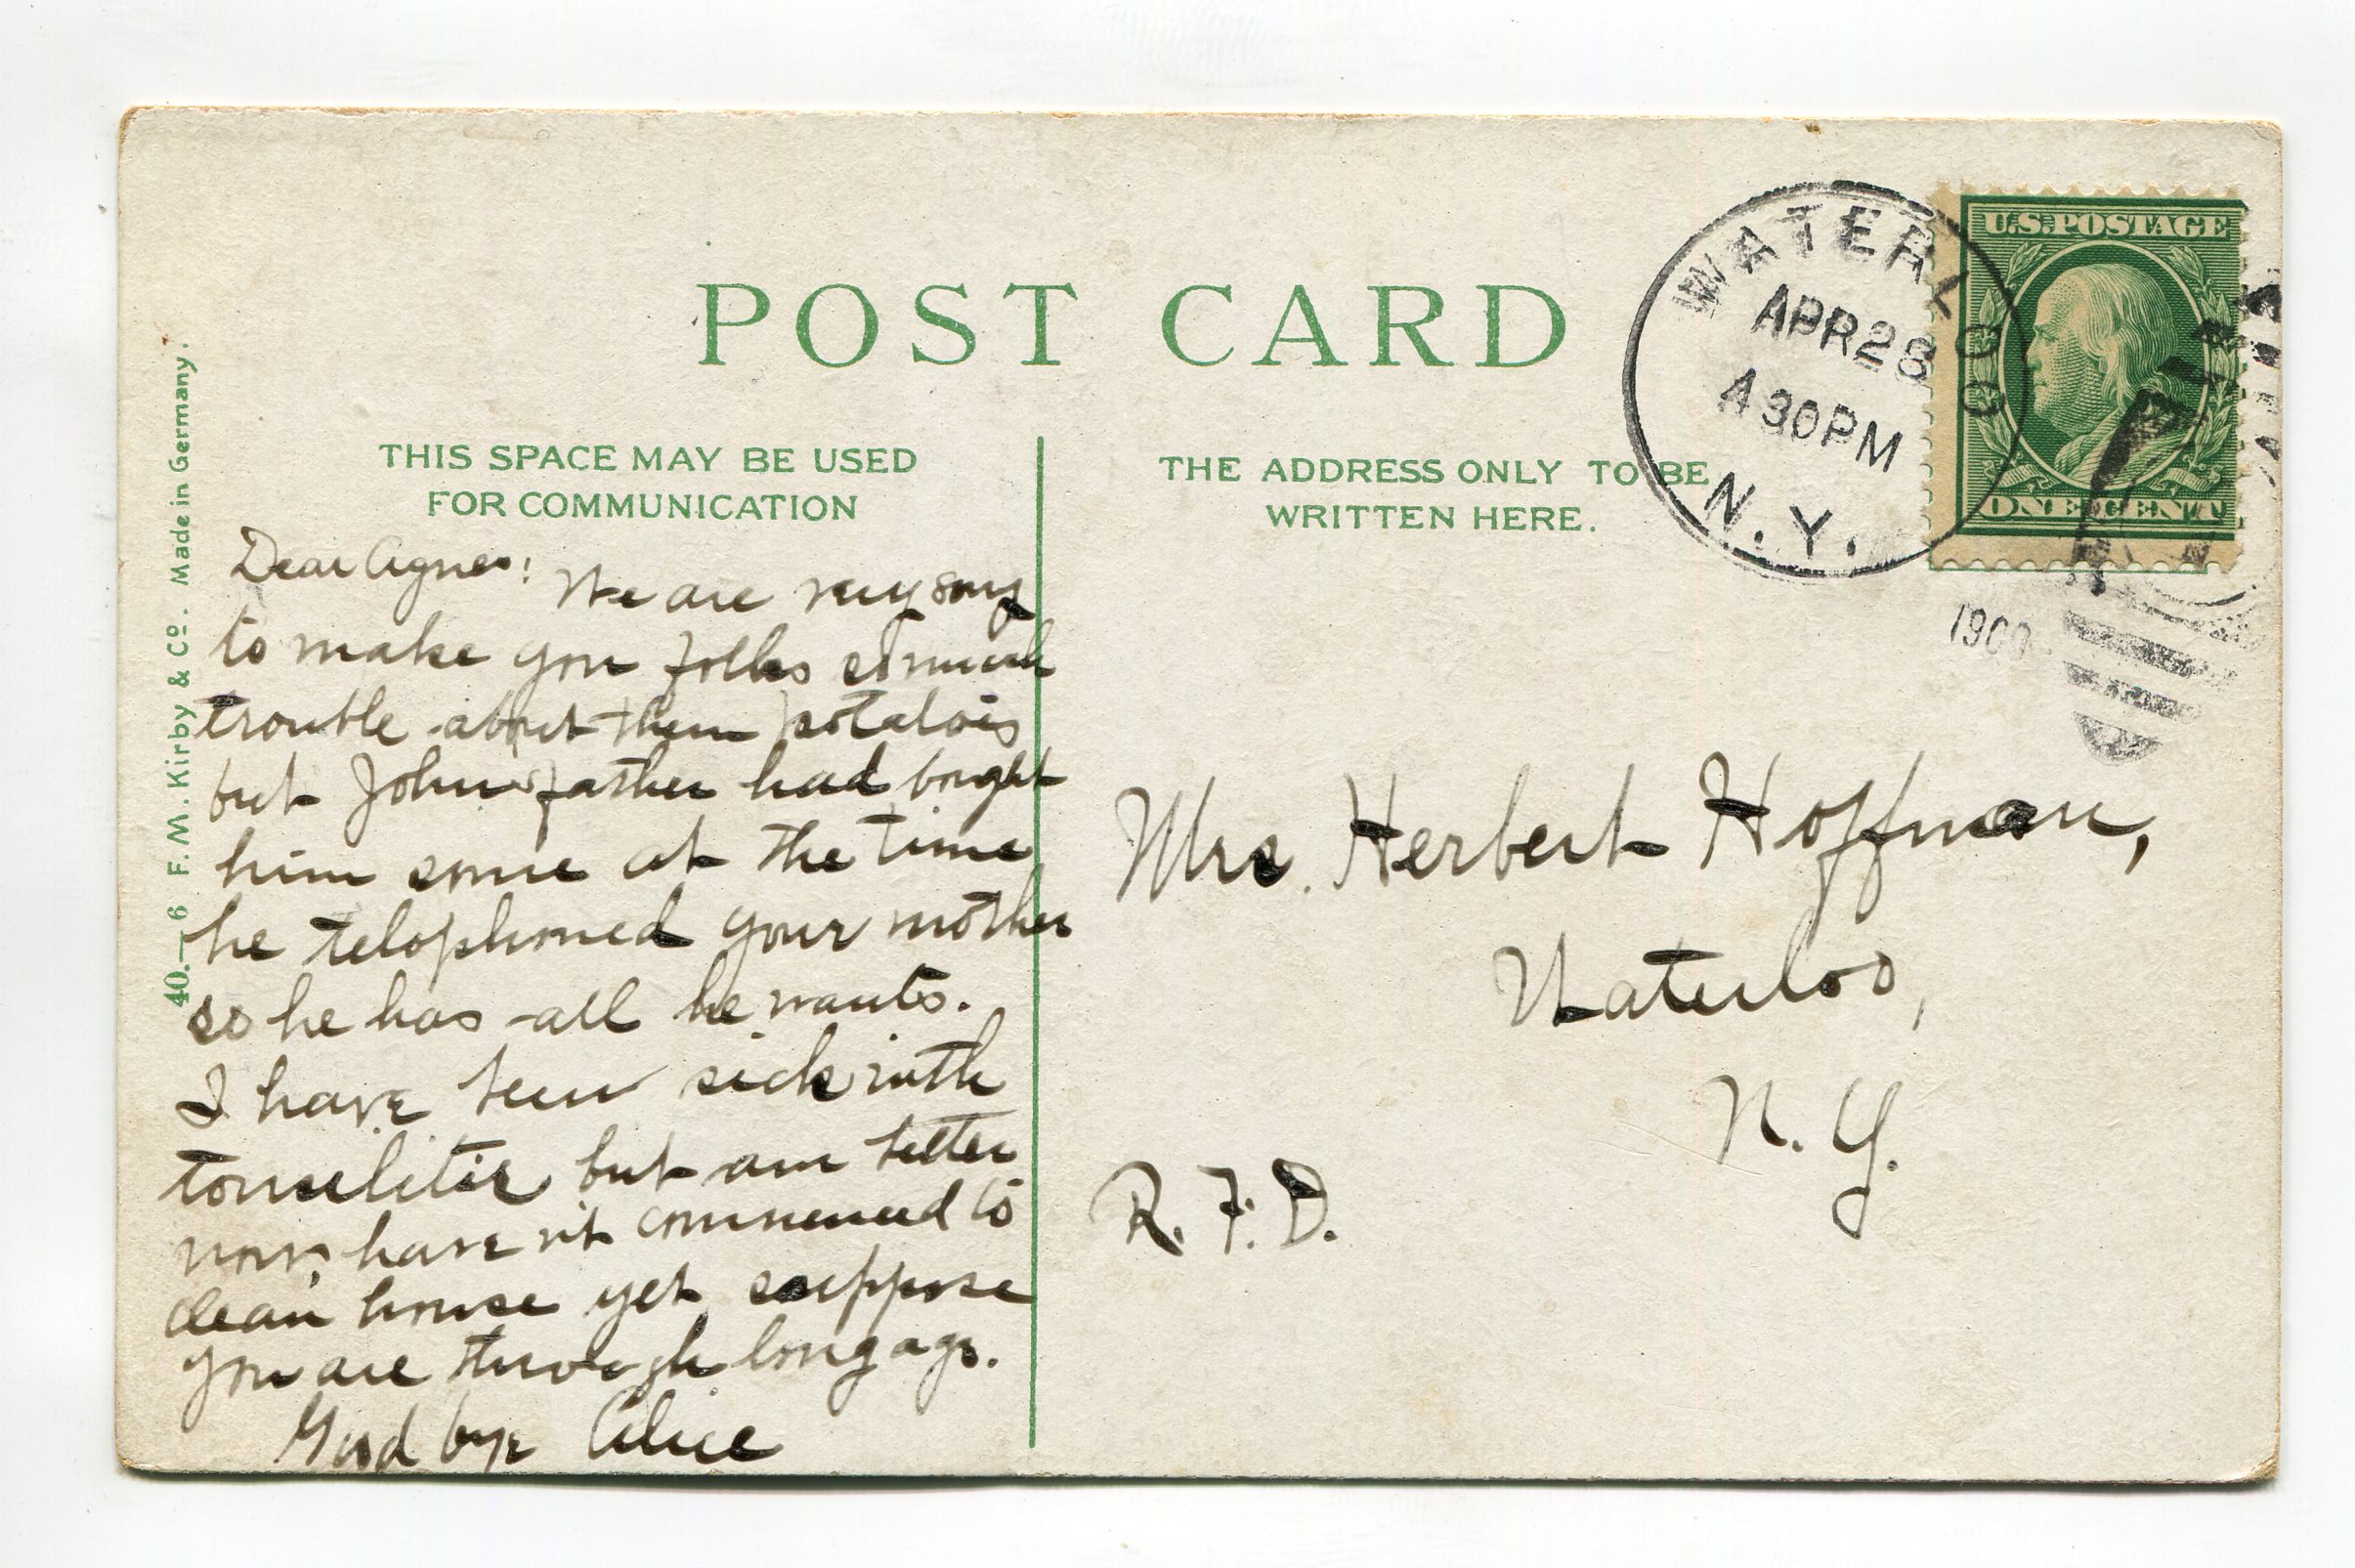 POST CARD
THIS SPACE MAY BE USED
FOR COMMUNICATION
THE ADDRESS ONLY TO BE
WRITTEN HERE.
40.—6 F. M. Kirby & Co. Made in Germany.
WATERLOO
APR 28
430PM
N.Y.
U.S. POSTAGE
ONE CENT
Dear Agnes: We are very sorry
to make you folks so much
trouble about them potatoes
but John's father had bought
him some at the time
he telephoned your mother
so he has all he wants.
I have been sick with
tonselitis but am better
now, have nt commenced to
clean house yet, suppose
you are through long ago.
Good bye Alice
Mrs. Herbert Hoffman,
Waterloo,
N. Y.
R. F. D.